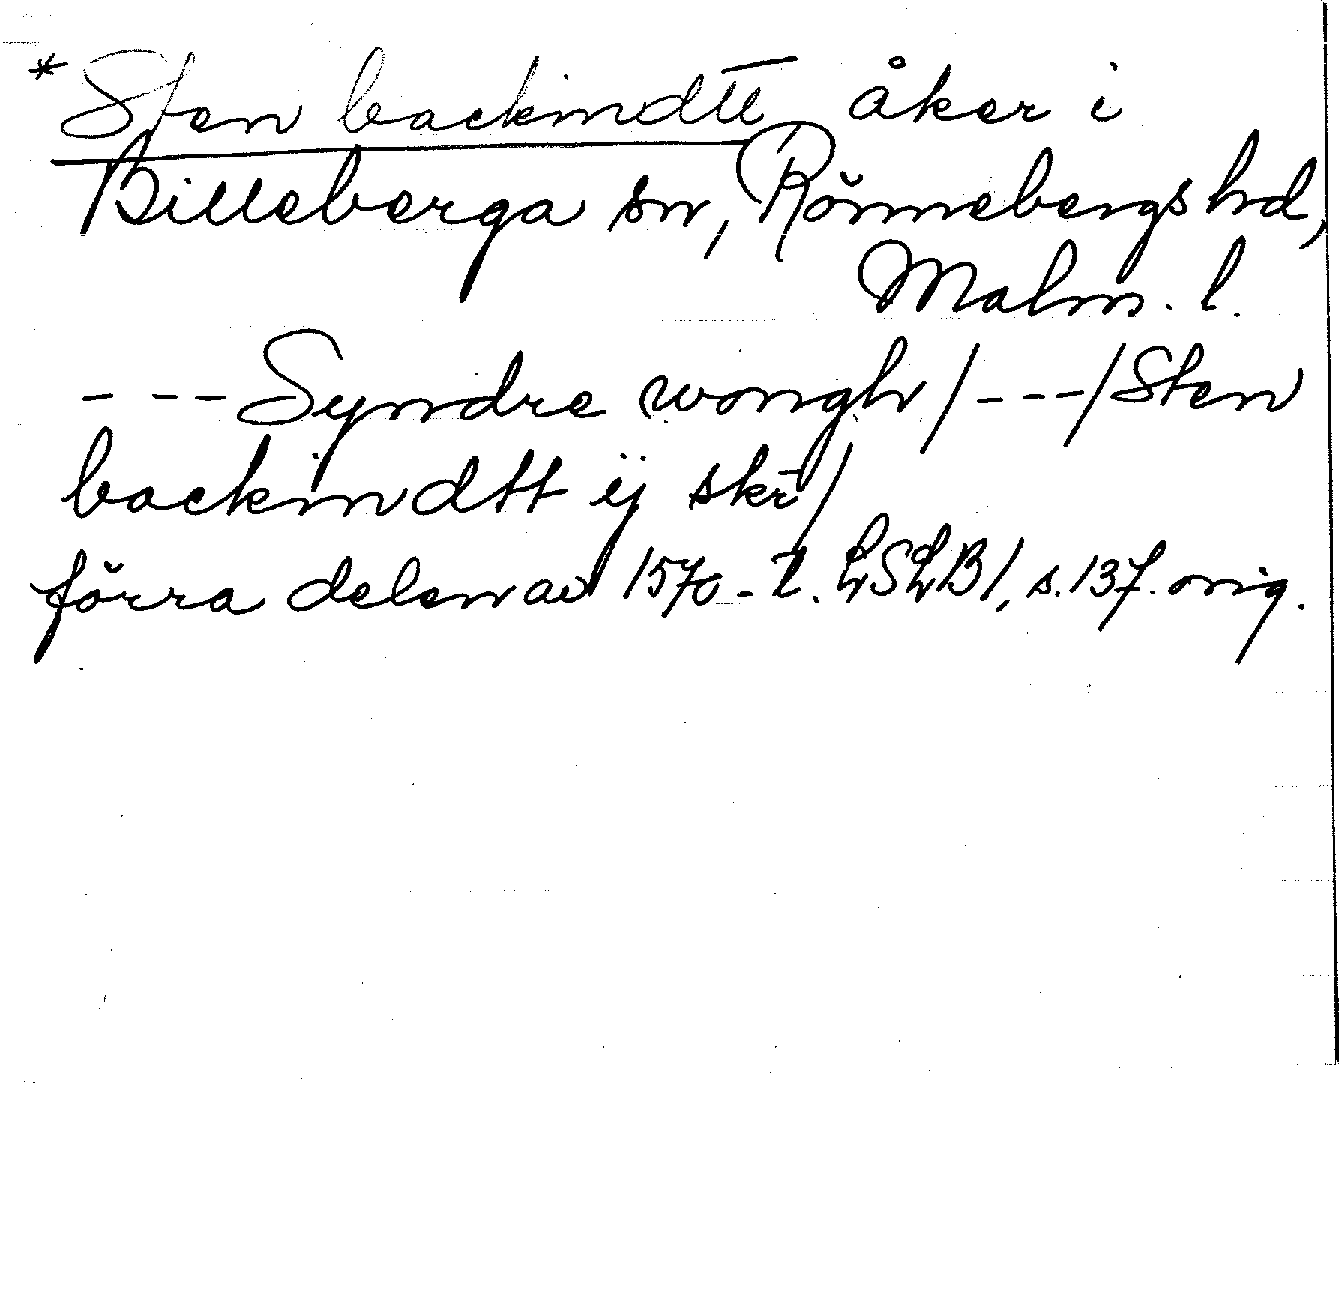 * Sten backindtt, åker i
Billeberga sn, Rönnebergs hd,
Malm. l.
---Syndre wongh/---/Sten
backindtt ij skr/
förra delen av 1570-t. LSLB1, s. 137. orig.